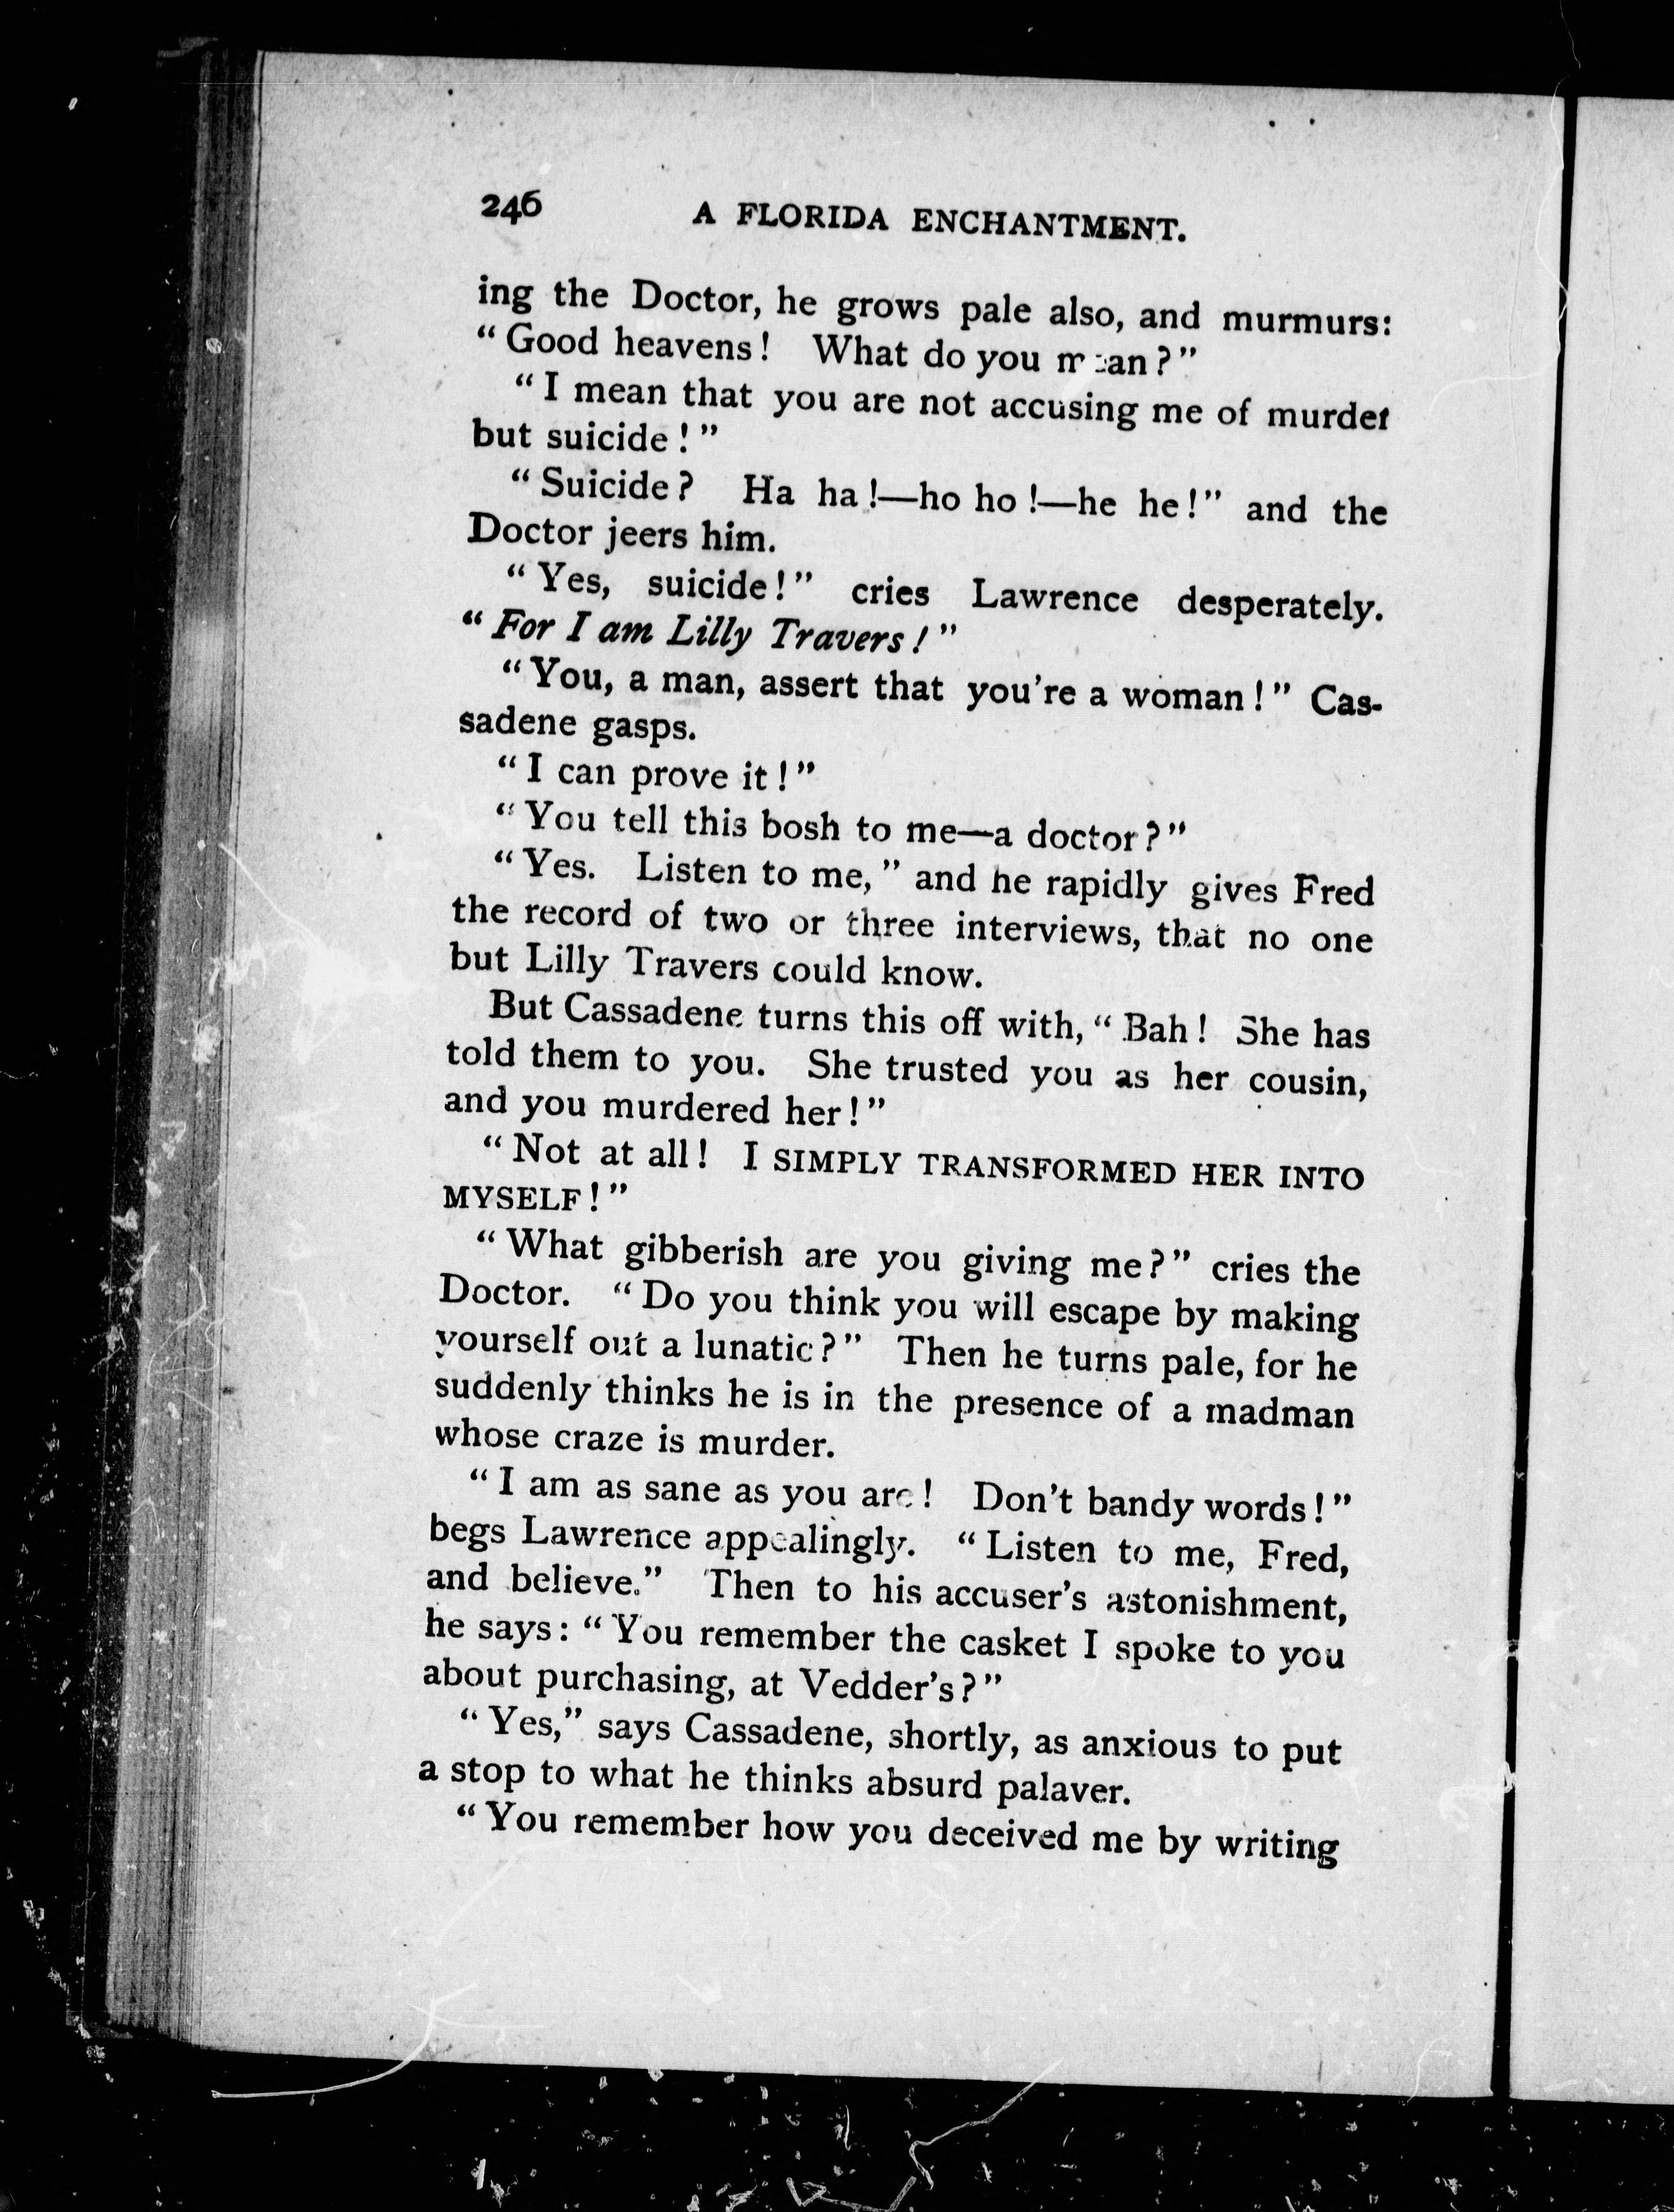 246 A FLORIDA ENCHANTMENT.
ing the Doctor, he grows pale also, and murmurs:
“Good heavens! What do you mean?”
“I mean that you are not accusing me of murder
but suicide!”
“Suicide? Ha ha!—ho ho!—he he!” and the
Doctor jeers him.
“Yes, suicide!” cries Lawrence desperately.
“For I am Lilly Travers!”
“You, a man, assert that you're a woman!” Cas-
sadene gasps.
“I can prove it!”
“You tell this bosh to me—a doctor?”
“Yes. Listen to me,” and he rapidly gives Fred
the record of two or three interviews, that no one
but Lilly Travers could know.
But Cassadene turns this off with, “Bah! She has
told them to you. She trusted you as her cousin,
and you murdered her!”
“Not at all! I SIMPLY TRANSFORMED HER INTO
MYSELF!”
“What gibberish are you giving me?” cries the
Doctor. “Do you think you will escape by making
yourself out a lunatic?” Then he turns pale, for he
suddenly thinks he is in the presence of a madman
whose craze is murder.
“I am as sane as you are! Don't bandy words!”
begs Lawrence appealingly. “Listen to me, Fred,
and believe.” Then to his accuser's astonishment,
he says: “You remember the casket I spoke to you
about purchasing, at Vedder's?”
“Yes,” says Cassadene, shortly, as anxious to put
a stop to what he thinks absurd palaver.
“You remember how you deceived me by writing